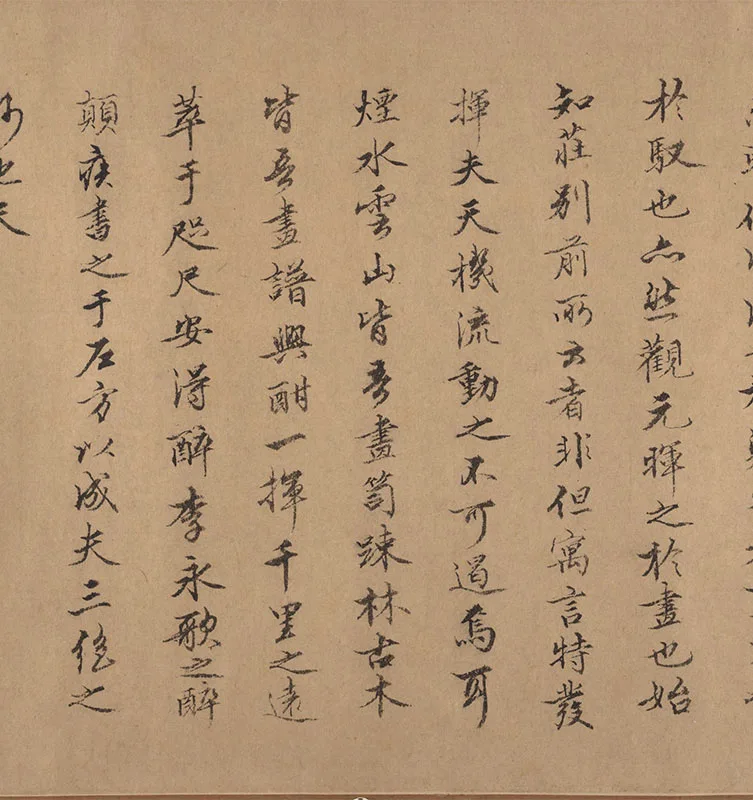 於馭也亦然觀元暉之於畫也始
知莊列前所云者非但寓言特發
揮夫天機流動之不可遏焉耳
煙水雲山皆吾畫笥疎林古木
皆吾畫譜興酣一揮千里之遠
萃于咫尺安得醉李永歌之醉
顛疾書之于左方以成夫三絕之
妙也夫